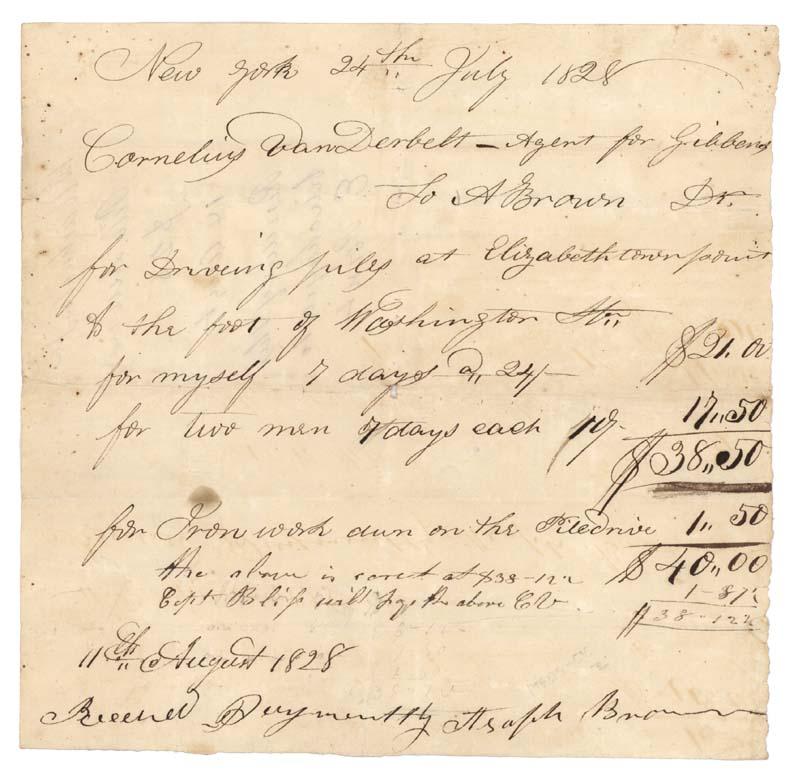 New york 24th July 1828
Cornelius VanDerbelt - Agent for Gibbons
To A Brown Dr.
for Driveing piles at Elizabethtown point
& the foot of Washington Str
for myself 7 days a 24/- $21.00
for two men 7 days each 10/- 17,,50
$38,,50
for Iron work dun on the Piledriver 1,,50
$40,,00
the above is corect at $38-12½ 1-87½
Capt Bliss will pay the above CV $38-12½
11th August 1828
Received Payment Asaph Brown